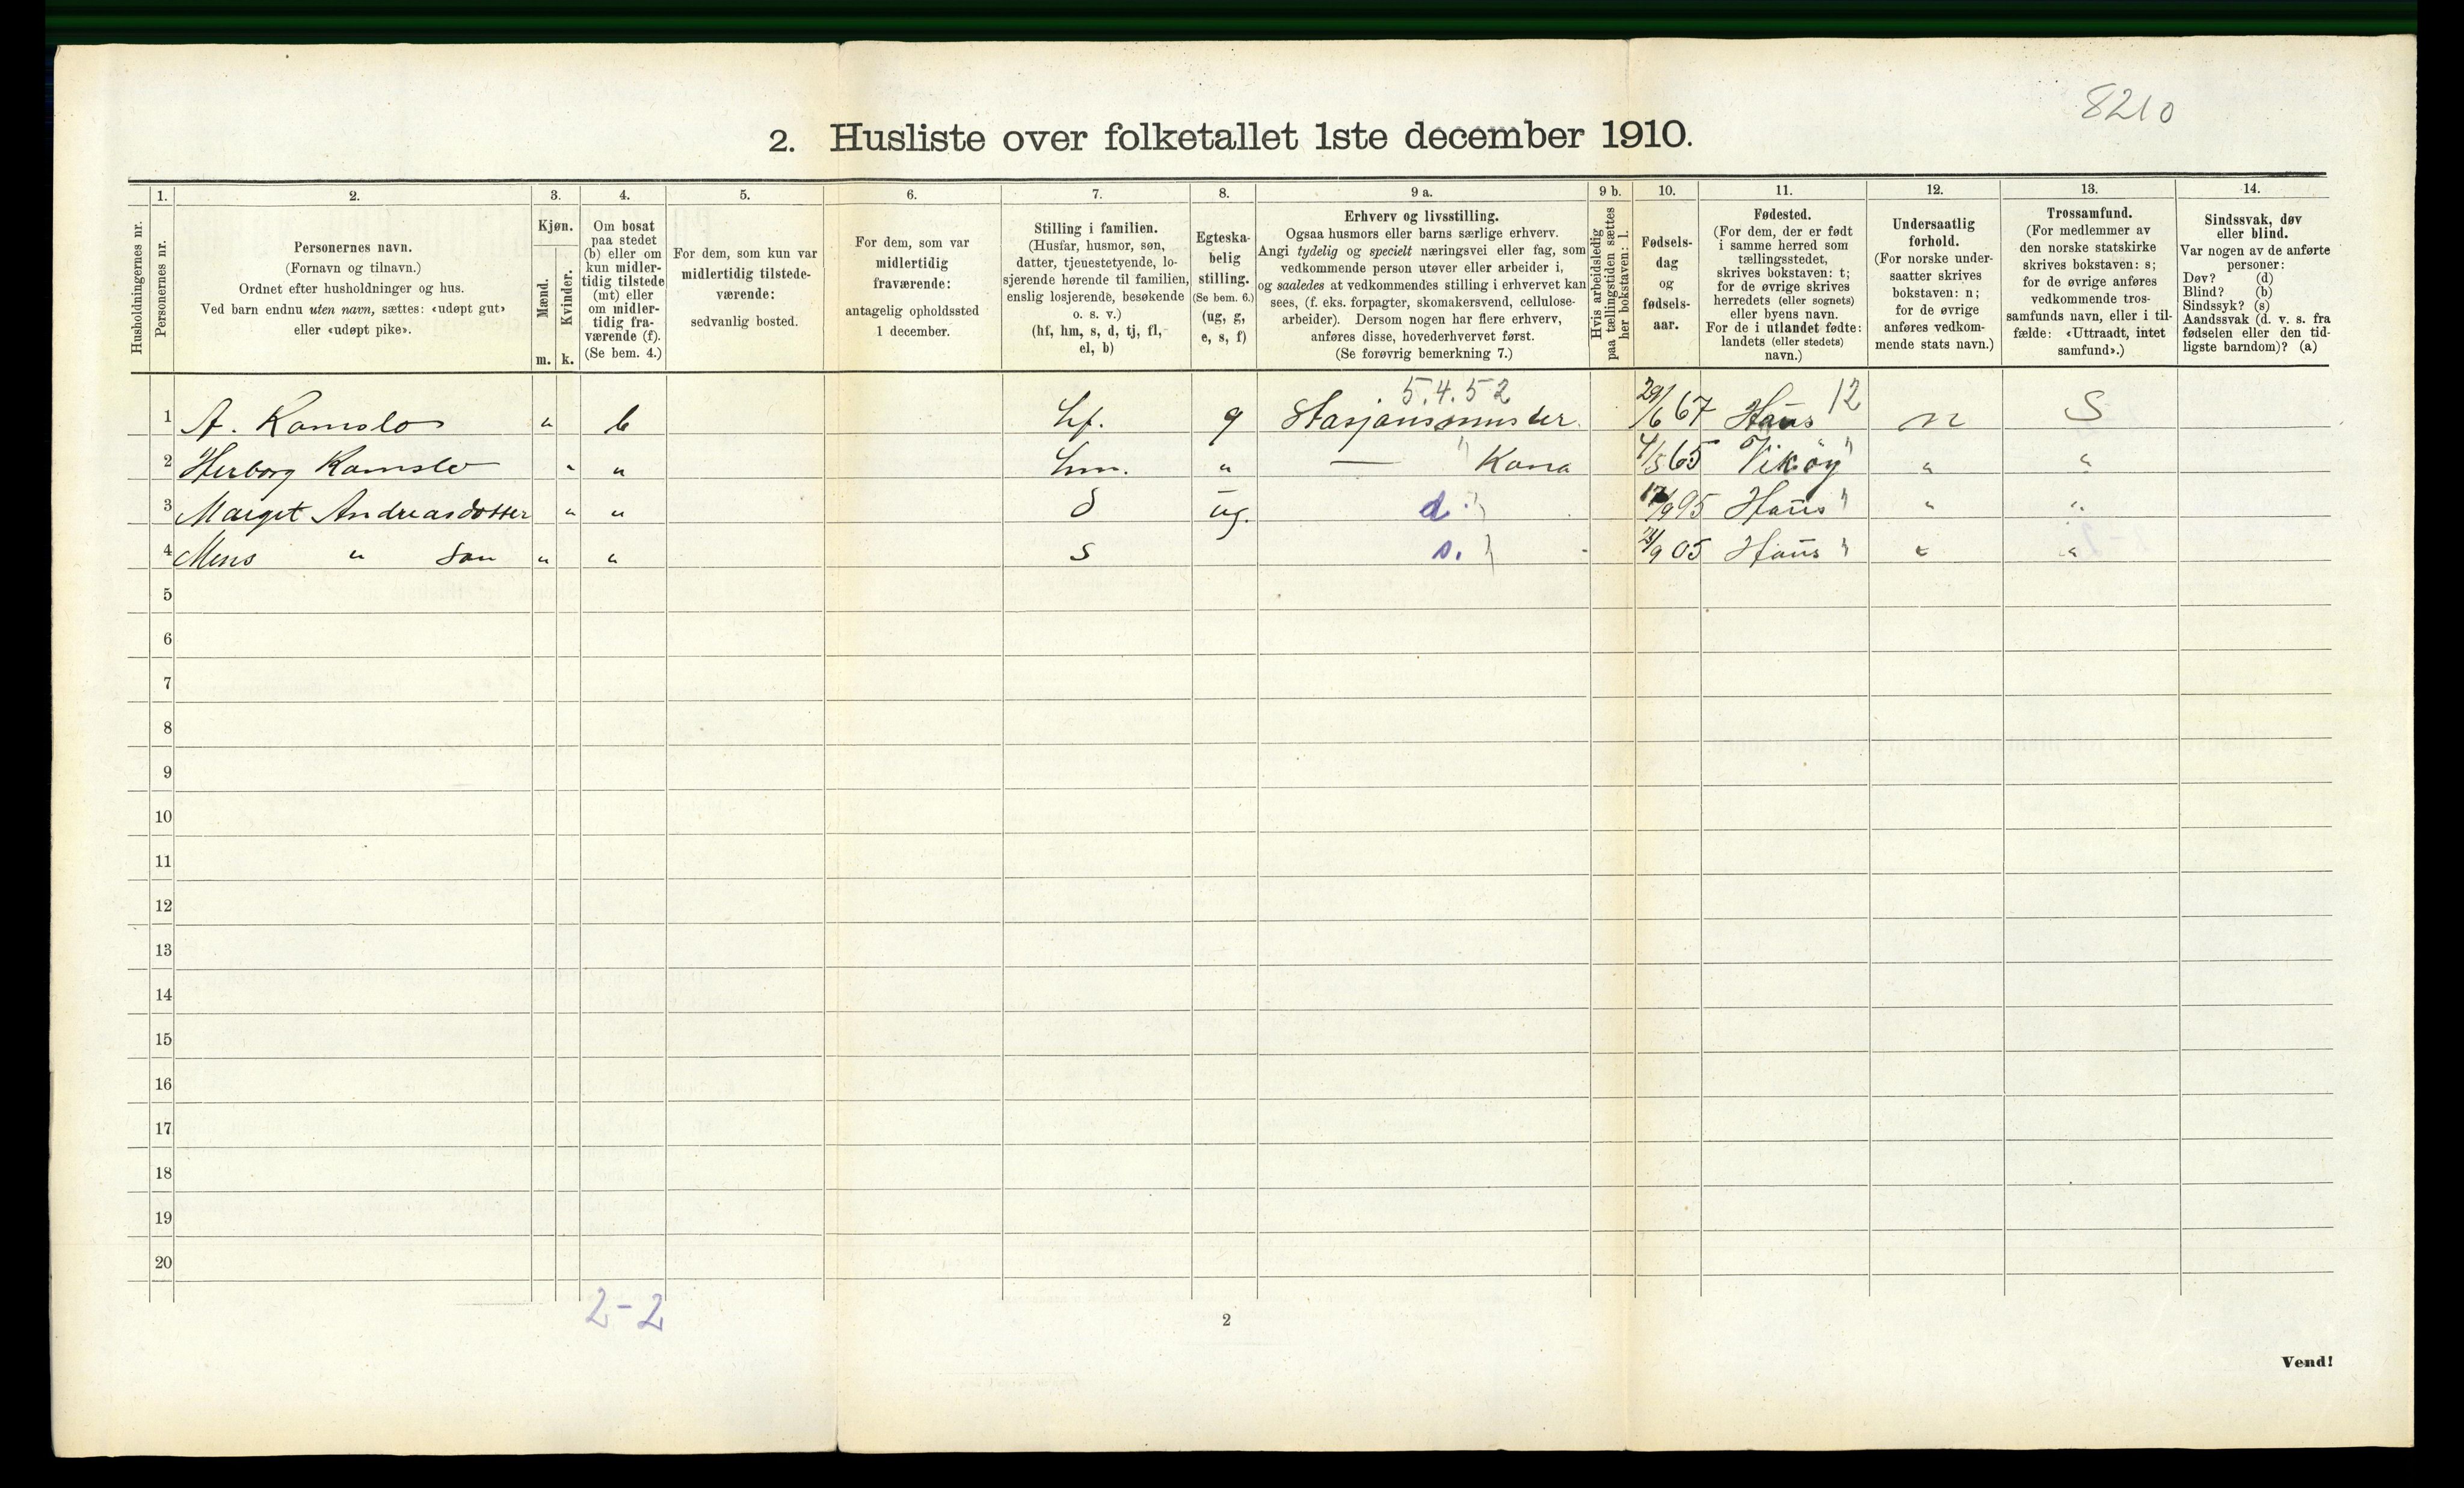 8210
2. Husliste over folketallet 1ste december 1910.
Husholdningernes nr.
1.
Personernes nr.
2.
Personernes navn.
(Fornavn og tilnavn.)
Ordnet efter husholdninger og hus.
Ved barn endnu uten navn, sættes: «udøpt gut»
eller «udøpt pike».
3.
Kjøn.
Mænd.
Kvinder.
m. k.
4.
Om bosat
paa stedet
(b) eller om
kun midler-
tidig tilstede
(mt) eller
om midler-
tidig fra-
værende (f).
(Se bem. 4.)
5.
For dem, som kun var
midlertidig tilstede-
værende:
sedvanlig bosted.
6.
For dem, som var
midlertidig
fraværende:
antagelig opholdssted
1 december.
7.
Stilling i familien.
(Husfar, husmor, søn,
datter, tjenestetyende, lo-
sjerende hørende til familien,
enslig losjerende, besøkende
o. s. v.)
(hf, hm, s, d, tj, fl,
el, b)
8.
Egteska-
belig
stilling.
(Se bem. 6.)
(ug, g,
e, s, f)
9 a.
Erhverv og livsstilling.
Ogsaa husmors eller barns særlige erhverv.
Angi tydelig og specielt næringsvei eller fag, som
vedkommende person utøver eller arbeider i,
og saaledes at vedkommendes stilling i erhvervet kan
sees, (f. eks. forpagter, skomakersvend, cellulose-
arbeider). Dersom nogen har flere erhverv,
anføres disse, hovederhvervet først.
(Se forøvrig bemerkning 7.)
9 b.
Hvis arbeidsledig
paa tællingstiden sættes
her bokstaven: l.
10.
Fødsels-
dag
og
fødsels-
aar.
11.
Fødested.
(For dem, der er født
i samme herred som
tællingsstedet,
skrives bokstaven: t;
for de øvrige skrives
herredets (eller sognets)
eller byens navn.
For de i utlandet fødte:
landets (eller stedets)
navn.)
12.
Undersaatlig
forhold.
(For norske under-
saatter skrives
bokstaven: n;
for de øvrige
anføres vedkom-
mende stats navn.)
13.
Trossamfund.
(For medlemmer av
den norske statskirke
skrives bokstaven: s;
for de øvrige anføres
vedkommende tros-
samfunds navn, eller i til-
fælde: «Uttraadt, intet
samfund».)
14.
Sindssvak, døv
eller blind.
Var nogen av de anførte
personer:
Døv? (d)
Blind? (b)
Sindssyk? (s)
Aandssvak (d. v. s. fra
fødselen eller den tid-
ligste barndom)? (a)
5.4.52
1 A. Ramslo " b hf. g Stasjonsmester. 29/6 67 Haus 12 n S
2 Herborg Ramslo " " hm. " — " Kona 4/5 65 Vikøy " "
3 Marget Andreasdotter " " d ug. d. 17/9 95 Haus " "
4 Mens " son " " s s. 21/9 05 Haus " "
5
6
7
8
9
10
11
12
13
14
15
16
17
18
19
20
2-2
2
Vend!